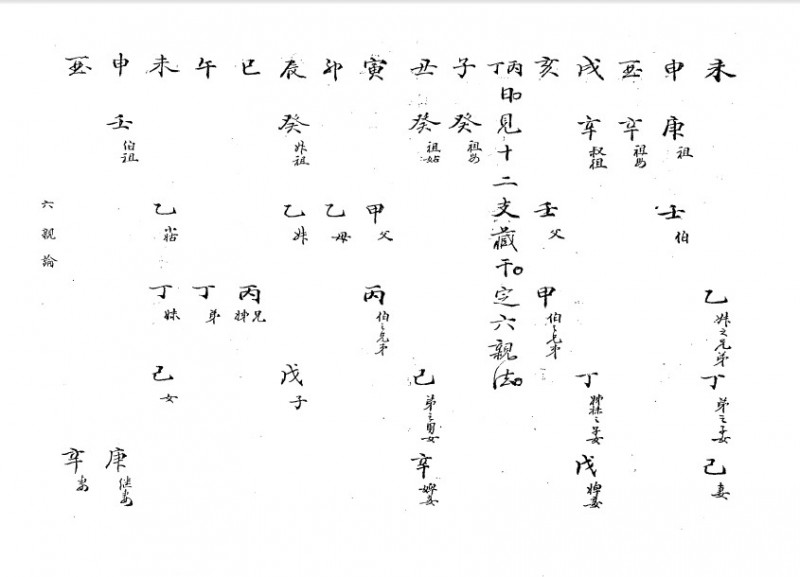 未 乙 妹之兄弟 丁 弟之子女 己 妻
申 庚 祖 壬 伯
酉 辛 祖母
戌 辛 叔祖 丁 姊妹之子女 戊 婢妾
亥 壬 父 甲 伯之兄弟
丙丁日見十二支藏干。定六親法。
子 癸 祖母
丑 癸 祖姑 己 弟之男女 辛 婢妾
寅 甲 父 丙 伯之兄弟
卯 乙 母
辰 癸 祖 乙 戊 子
巳 丙 兄姊
午 丁 弟
未 乙 丁 妹 己 女
申 壬 伯祖 庚 継妻
酉 辛 妻
六親論